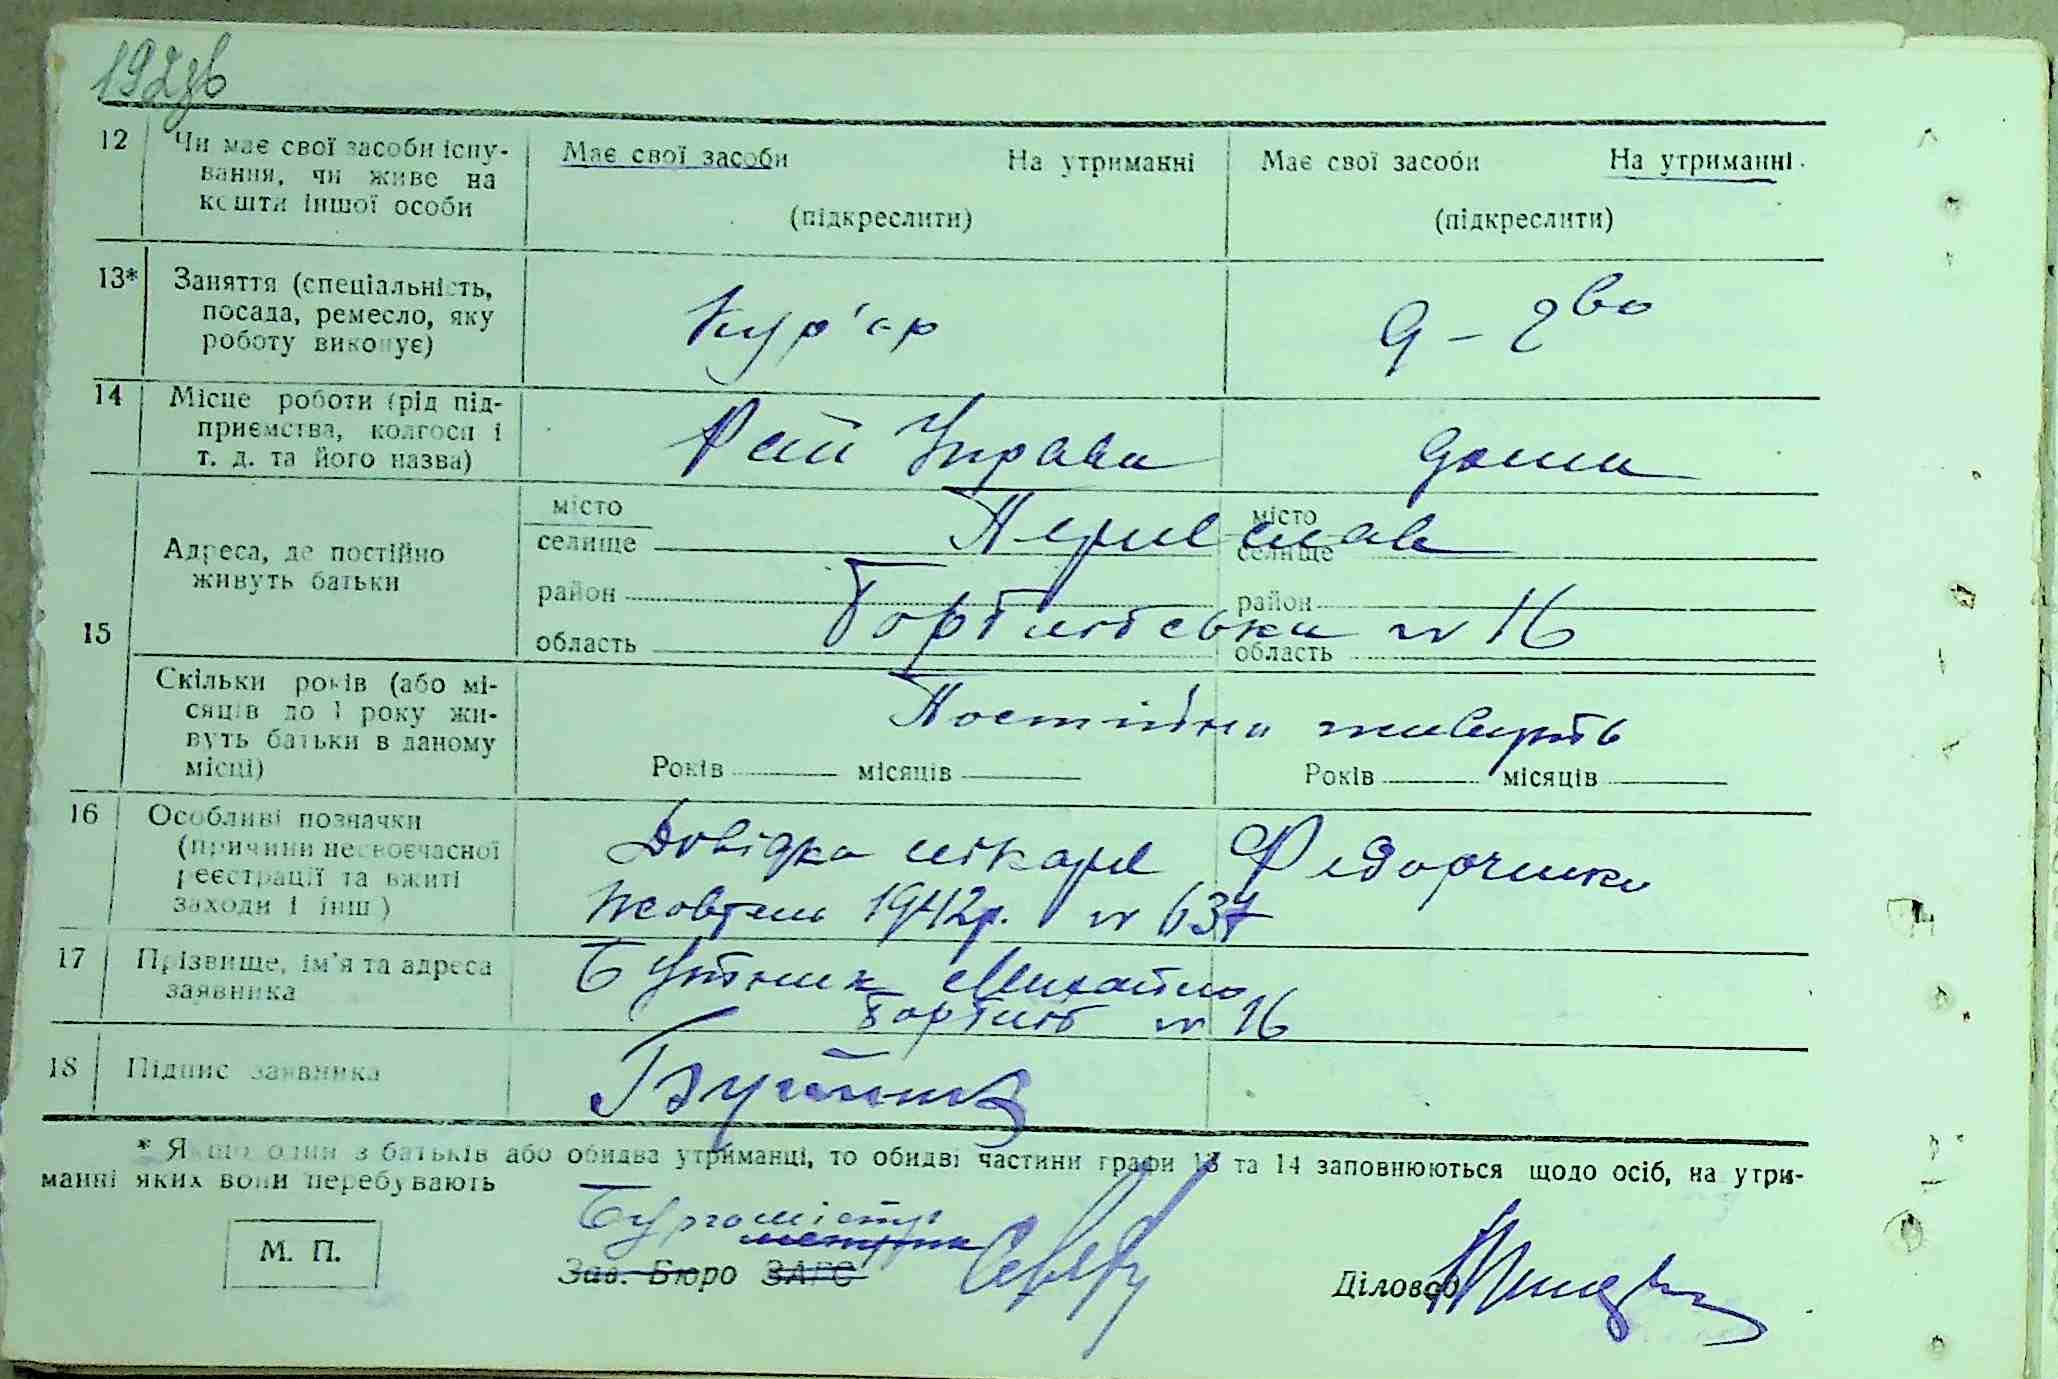 192
12 Чи має свої засоби існу-
вання, чи живе на
кошти іншої особи
Має свої засоби На утриманні
(підкреслити)
Має свої засоби На утриманні
(підкреслити)
13* Заняття (спеціальність,
посада, ремесло, яку
роботу виконує)
Кур'єр
д-тво
14 Місце роботи (рід під-
приємства, колгосп і
т. д. та його назва)
Рай Управа
дома
15
Адреса, де постійно
живуть батьки
місто
селище
район
область
місто
селище
район
область
Переяслав
№ 16
Скільки років (або мі-
сяців до 1 року жи-
вуть батьки в даному
місці)
Постійно живуть
Років місяців
Років місяців
16 Особливі позначки
(причини несвоєчасної
реєстрації та вжиті
заходи і інш.)
Довідка лікаря Федорченко
Жовтень 1942р. № 637
17 Прізвище, ім'я та адреса
заявника
Бутник Михайло
№ 16
18 Підпис заявника
Бутник
* Якщо один з батьків або обидва утриманці, то обидві частини графи 13 та 14 заповнюються щодо осіб, на утри-
манні яких вони перебувають
М. П.
Бургомістр
Зав. Бюро ЗАГС
Діловод